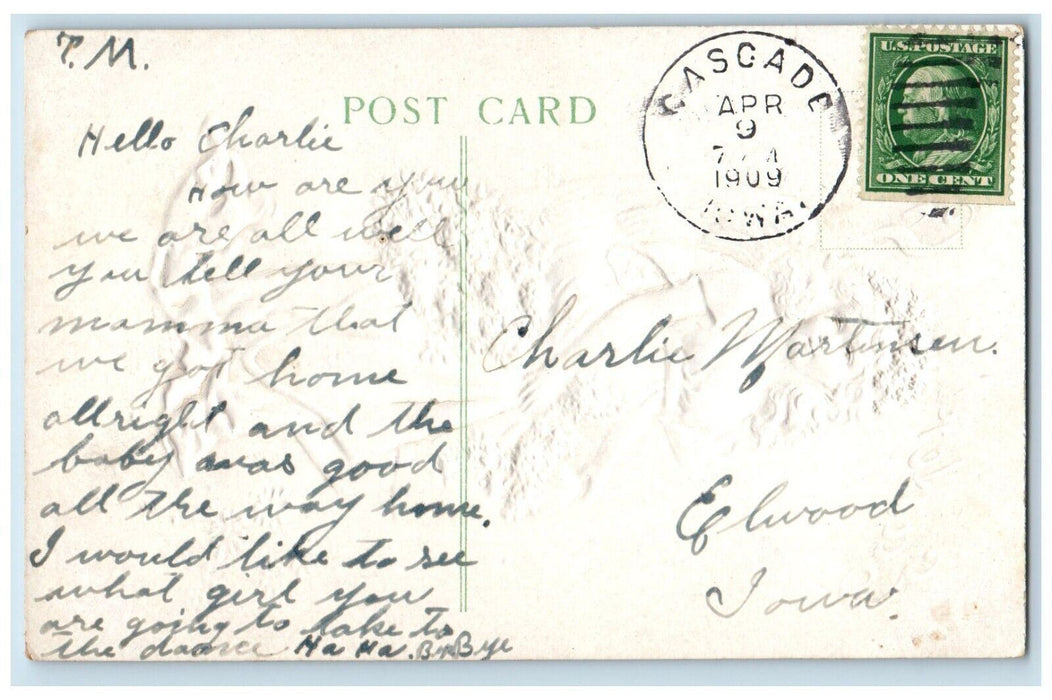 T. M.
POST CARD
CASCADE
APR
9
1909
IOWA.
U.S. POSTAGE
ONE CENT
Hello Charlie
How are you
we are all well
you tell your
mamma that
we got home
allright and the
baby was good
all the way home.
I would like to see
what girl you
are going to take to
the daance Ha Ha. By Bye
Charlie Martensen.
Elwood
Iowa.